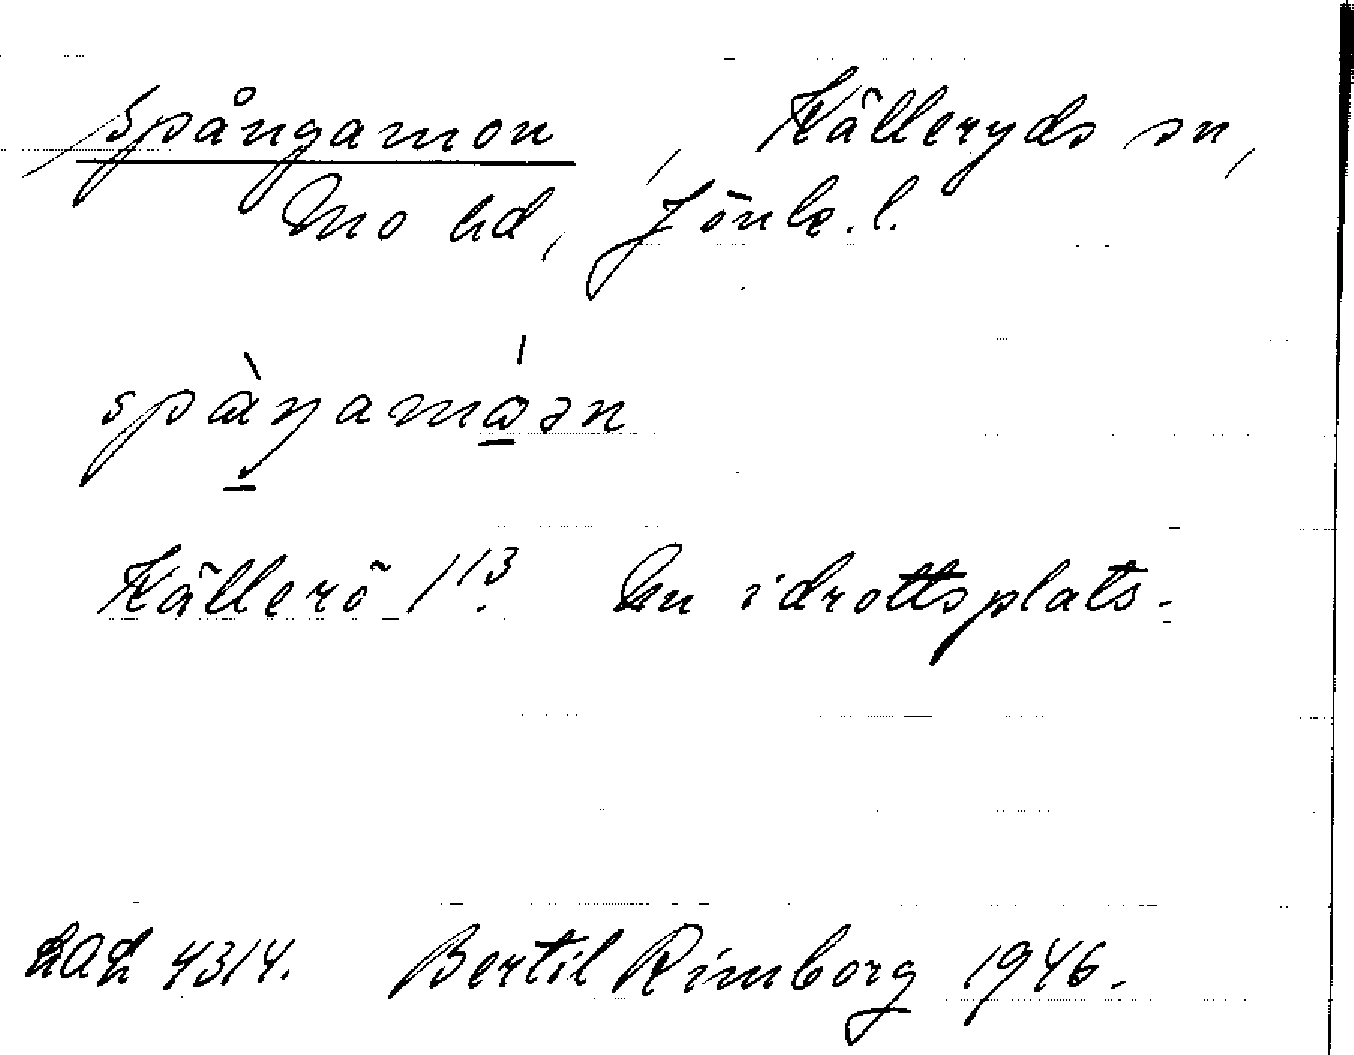 Spångamon, Källeryds sn,
Mo hd, Jönk. l.
spàŋamón
Källerö 1¹³. En idrottsplats.
LAL 4314. Bertil Rimborg 1946.